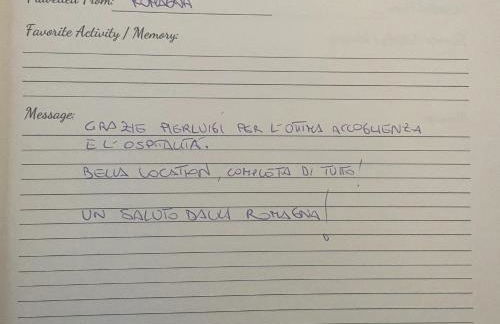 Travelled From: ROMAGNA
Favorite Activity / Memory:
Message:
GRAZIE PIERLUIGI PER L'OTTIMA ACCOGLIENZA
E L'OSPITALITÁ.
BELLA LOCATION, COMPLETA DI TUTTO!
UN SALUTO DALLA ROMAGNA!